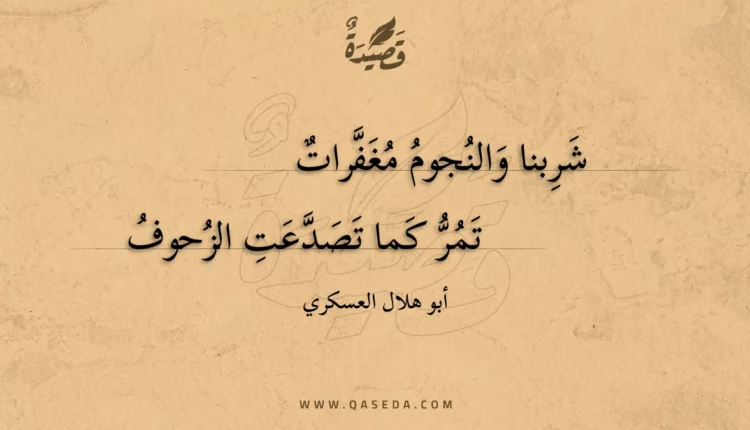 قَصِيْدَةٌ
شَرِبنا وَالنُجومُ مُغَفَّراتٌ
تَمُرُّ كَما تَصَدَّعَتِ الزُحوفُ
أبو هلال العسكري
WWW.QASEDA.COM